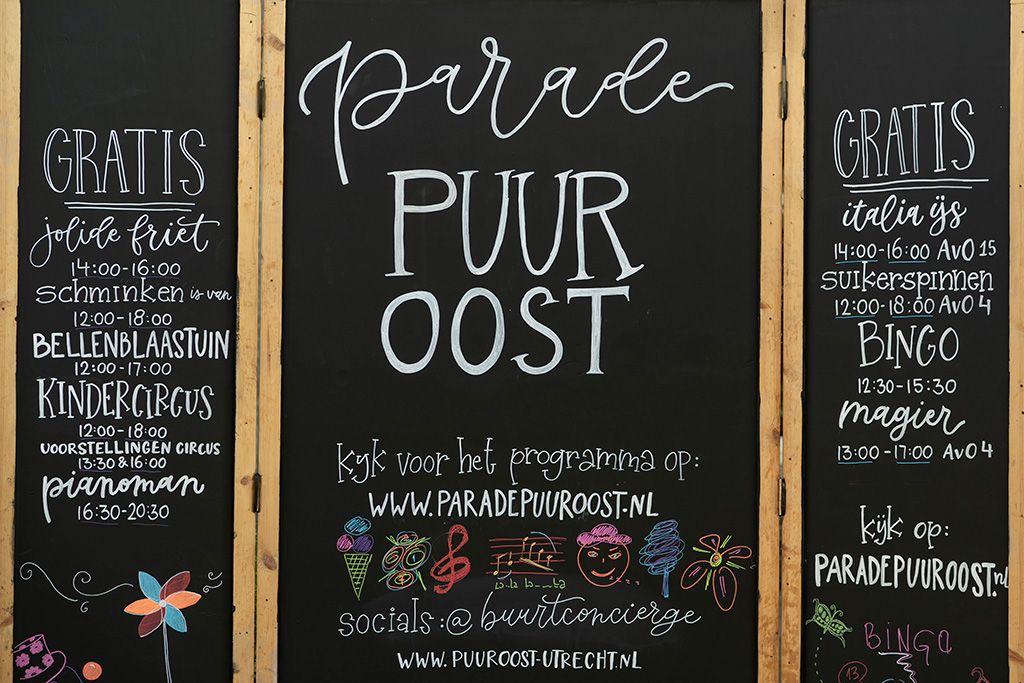 GRATIS
jolide friet
14:00-16:00
schminken is van
12:00-18:00
BELLENBLAASTUIN
12:00-17:00
KINDERCIRCUS
12:00-18:00
VOORSTELLINGEN CIRCUS
13:30 & 16:00
pianoman
16:30-20:30
parade
PUUR
OOST
kijk voor het programma op:
WWW.PARADEPUUROOST.NL
la-la la---la
socials:@buurtconcierge
WWW.PUUROOST-UTRECHT.NL
GRATIS
italia ijs
14:00-16:00 AvO 15
suikerspinnen
12:00-18:00 AvO 4
BINGO
12:30-15:30
magier
13:00-17:00 AvO 4
kijk op:
PARADEPUUROOST.nl
BINGO
13